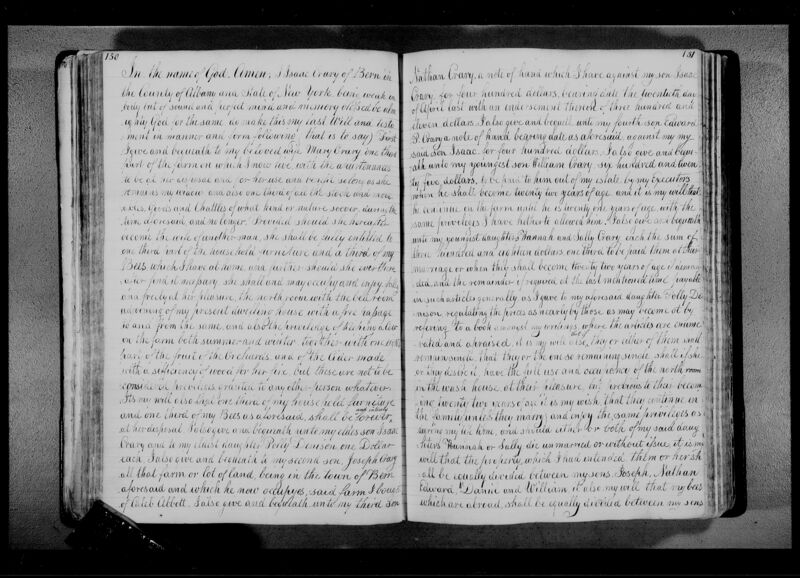 150
In the name of God. Amen, I Isaac Crary of Bern in
the County of Albany and State of New York being weak in
body but of sound and perfect mind and memory blessed be alm
ighty God for the same do make this my last Will and testa
ment in manner and form following (that is to say) First
I give and bequeath to my beloved wife Mary Crary one third
part of the farm on which I now live with the appurtenances
to be at her disposal and for her use and benefit so long as she
remains my widow and also one third of all the stock and move
ables, Goods and Chattles of what kind or nature soever, during the
time aforesaid, and no longer. Provided should she hereafter
become the wife of another man, she shall be surely entitled to
one third part of the household furniture and a third of my
Bees which I have at home and further should she ever there
after find it necessary she shall and may occupy and enjoy fully
and freely at her pleasure, the north room with the bed room
adjoining of my present dwelling house with a free passage
to and from the same, and also the priviledge of keeping a Cow
on the farm both summer and winter together with one
part of the fruit of the Orchards and of the Cider made
with a sufficiency of wood for her fire but these are not to be
considered priviledges granted to any other person whatever.
It is my will also that one third of my house hold furniture
and one third of my Bees as aforesaid, shall be and entirely forever
at her disposal I also give and bequeath unto my eldest son Isaac
Crary and to my eldest daughter Polly Denison one Dollar
each, I also give and bequeath to my second son Joseph Crary
all that farm or lot of land, being in the town of Bern
aforesaid and which he now occupies, said farm I bought
of Caleb Abbott. I also give and bequeath unto my third son
151
Nathan Crary, a note of hand which I have against my son Isaac
Crary, for four hundred dollars, bearing date the twentieth day
of April last with an endorsement thereof of three hundred and
eleven dollars. I also give and bequeath unto my fourth son Edward
P. Crary a note of hand bearing date as aforesaid against my
said son Isaac for four hundred dollars. I also give and bequ
eath unto my youngest son William Crary, six hundred and twen
ty five dollars, to be paid to him out of my estate by my executors
when he shall become twenty two years of age and it is my will that
he continue on the farm until he is twenty one years of age with the
same privileges I have hitherto allowed him. I also give and bequeath
unto my youngest daughters Hannah and Sally Crary each the sum of
three hundred and eighteen dollars one third to be paid them at their
marriage or when they shall become twenty two years of age if deman
ded, and the remainder if required at the last mentioned time payable
in such articles generally as I gave to my aforesaid daughter Polly De
nison regulating the prices as nearly by those as may become at by
refering to a book amongst my writings where the articles are enume
rated and apraised. it is my will also, they or either of them shall
remain single that they or the one so remaining single shall if she
or they desire it, have the full use and occupance of the north room
in the wash house at their pleasure, but previous to their becom
ing twenty two years of age it is my wish that they continue in
the family unless they marry and enjoy the same privileges as
during my life time, and should either or both of my said daug
hters Hannah or Sally die unmarried or without issue it is my
will that the property which I had intended them or her sh
all be equally divided between my sons. Joseph, Nathan
Edward, and William it also my will that my bees
which are abroad shall be equally divided between my sons